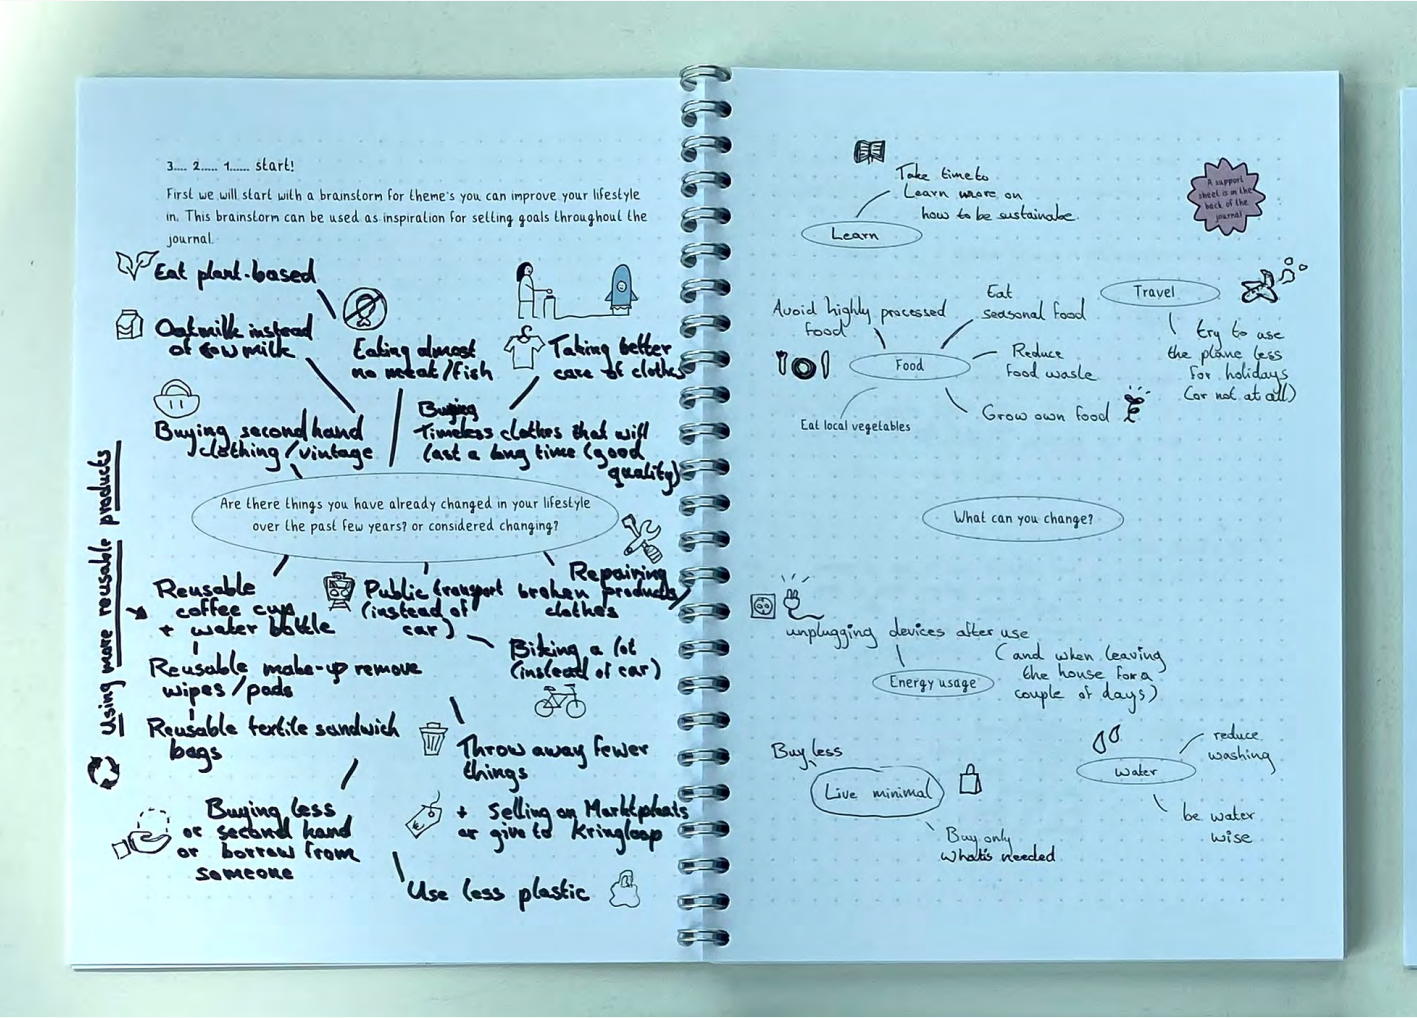 3.... 2..... 1...... start!
First we will start with a brainstorm for theme's you can improve your lifestyle
in. This brainstorm can be used as inspiration for setting goals throughout the
journal.
Eat plant-based
Oatmilk instead
of cow milk
Eating almost
no meat/fish
Taking better
care of clothes
Buying second hand
clothing/vintage
Buying
Timeless clothes that will
last a long time (good
quality)
Are there things you have already changed in your lifestyle
over the past few years? or considered changing?
Using more reusable products
Reusable
coffee cup
+ water bottle
Public transport
(instead of
car)
Repairing
broken products/
clothes
Biking a lot
(instead of car)
Reusable make-up remove
wipes/pads
Reusable textile sandwich
bags
Throw away fewer
things
+ Selling on Marktplaats
or give to Kringloop
Buying less
or second hand
or borrow from
someone
Use less plastic
Take time to
Learn more on
how to be sustainabe
Learn
A support
sheet is in the
back of the
journal
Travel
try to use
the plane less
for holidays
(or not at all)
Avoid highly processed
food
Eat
seasonal food
Food
Reduce
food waste
Grow own food
Eat local vegetables
What can you change?
unplugging devices after use
(and when leaving
the house for a
couple of days)
Energy usage
Buy less
Live minimal
Buy only
what's needed
reduce
washing
Water
be water
wise